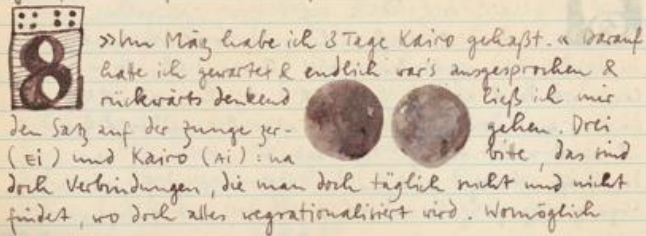 8
»Im März habe ich 3 Tage Kairo gehaßt.« Darauf
hatte ich gewartet & endlich war's ausgesprochen &
rückwärts denkend ließ ich mir
den Satz auf der Zunge zer- gehen. Drei
(Ei) und Kairo (Ai): na bite, das sind
doch Verbindungen, die man doch täglich sucht und nicht
findet, wo doch alles wegrationalisiert wird. Womöglich